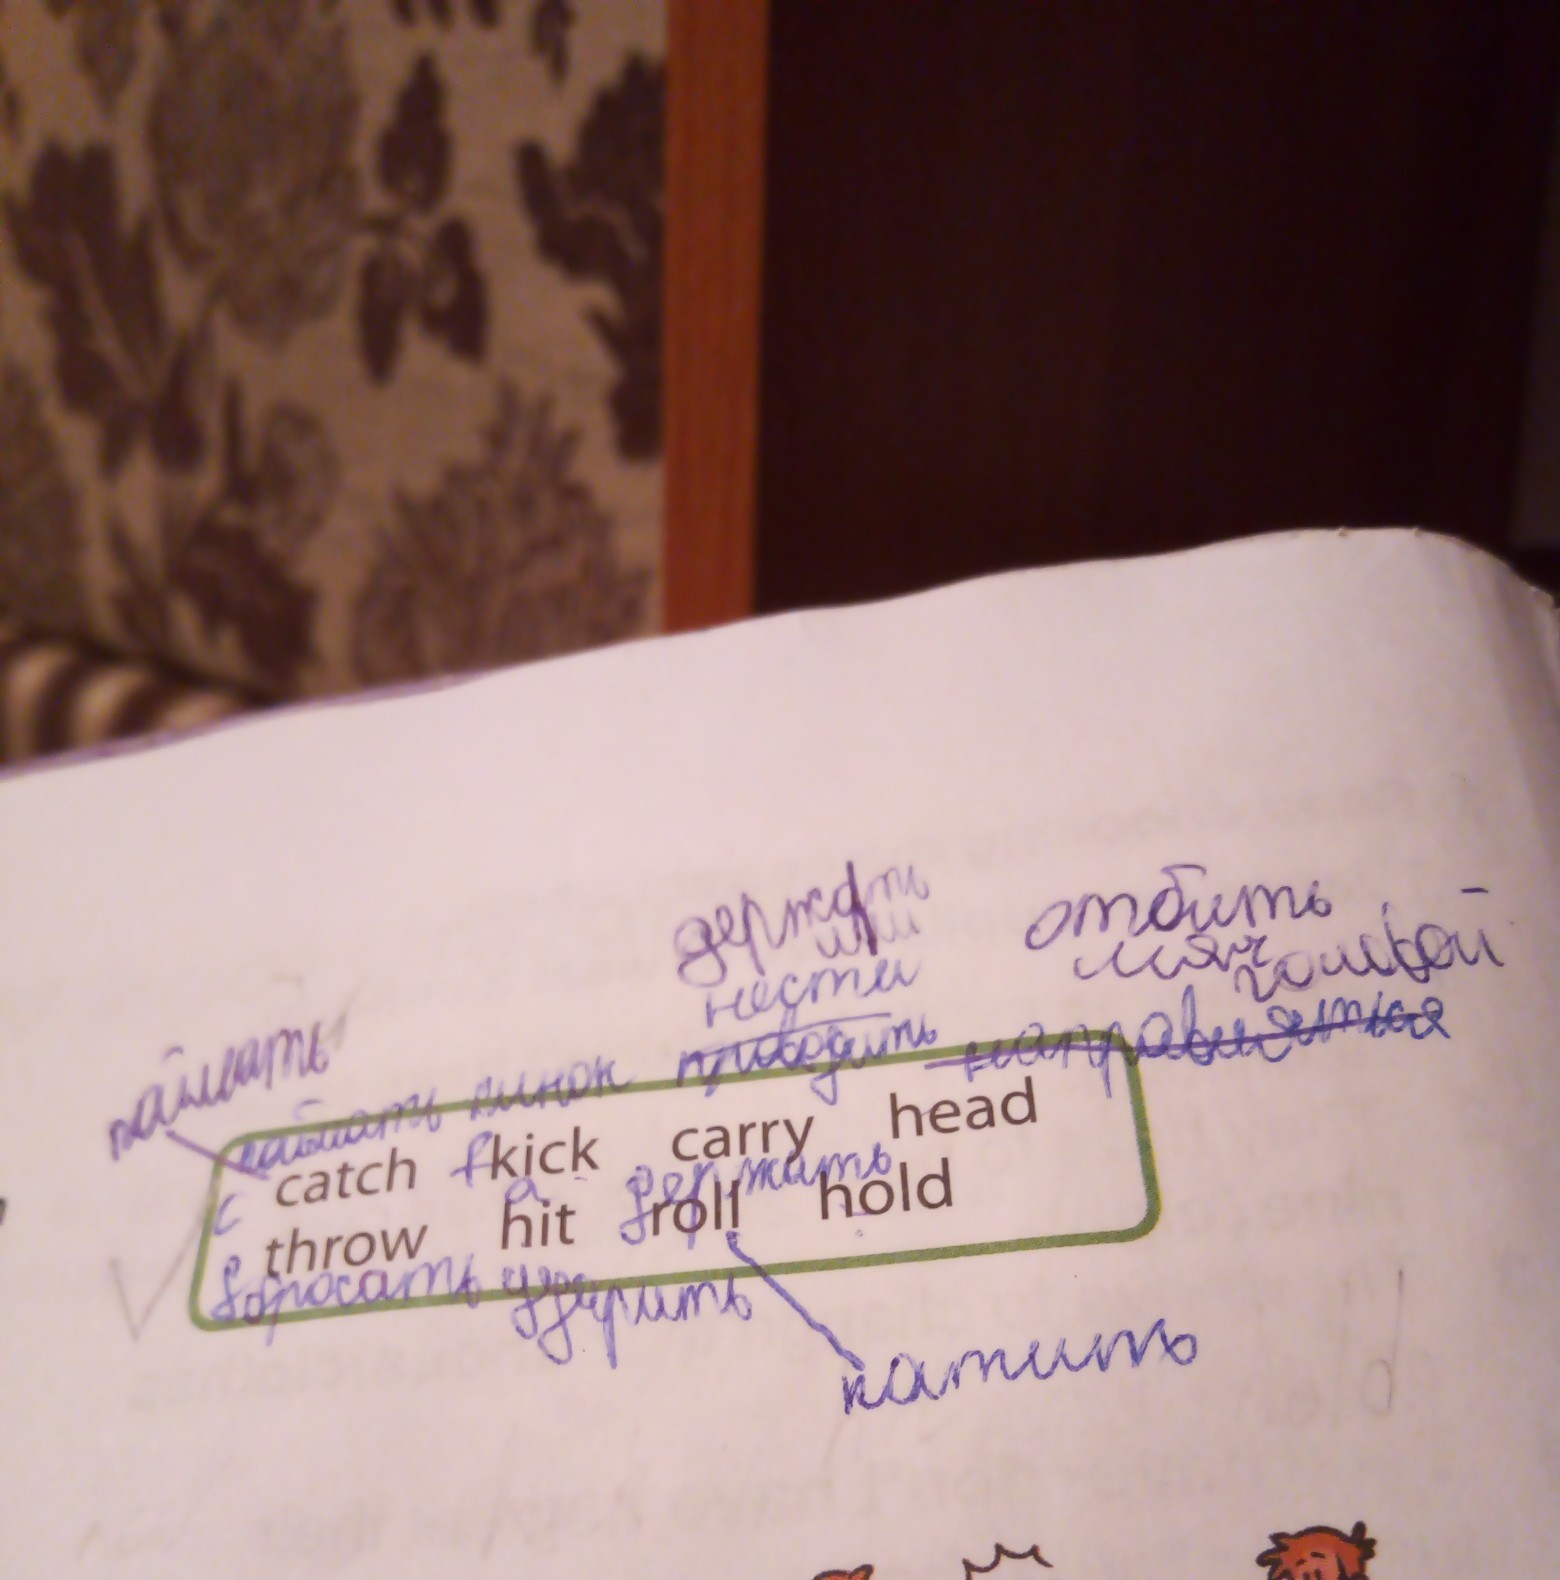 держать
или
нести
отбить
мяч
головой
поймать
поймать пинок приводить направляться
catch f kick carry head
c a держать
throw hit roll hold
f бросать ударить
катить